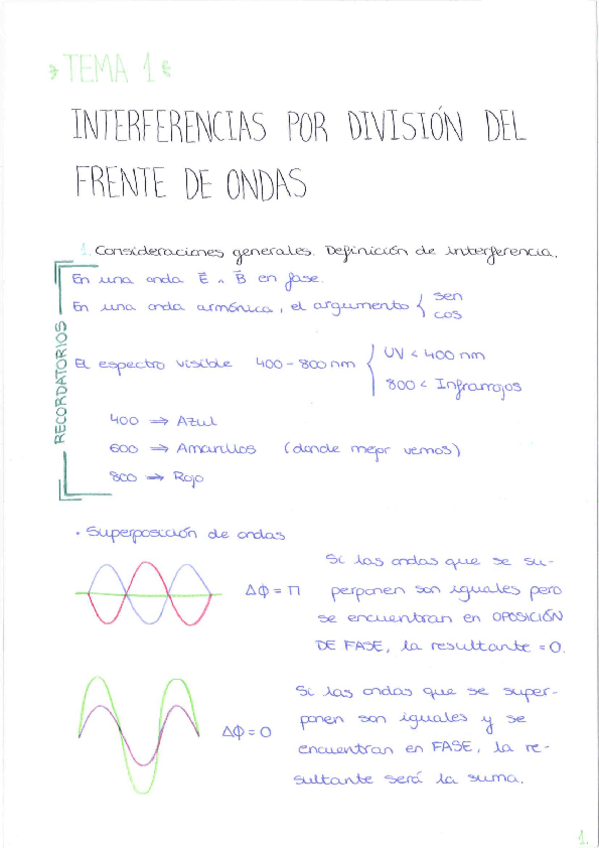 TEMA 1
INTERFERENCIAS POR DIVISIÓN DEL
FRENTE DE ONDAS
1. Consideraciones generales. Definición de interferencia.
RECORDATORIOS
En una onda E⃗ ∧ B⃗ en fase.
En una onda armónica, el argumento { sen
cos
El espectro visible 400-800 nm { UV < 400 nm
800 < Infrarrojos
400 ⇒ Azul
600 ⇒ Amarillos (donde mejor vemos)
800 ⇒ Rojo
· Superposición de ondas
Δϕ = π
Si las ondas que se su-
perponen son iguales pero
se encuentran en OPOSICIÓN
DE FASE, la resultante = 0.
Δϕ = 0
Si las ondas que se super-
ponen son iguales y se
encuentran en FASE, la re-
sultante será la suma.
1.